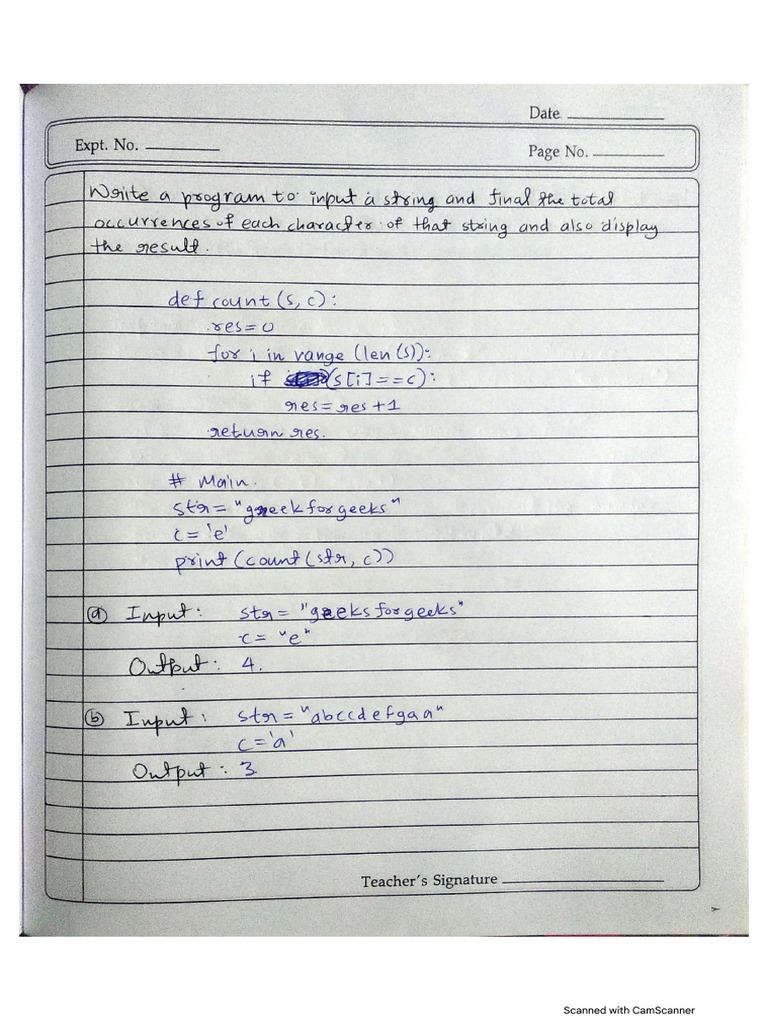 Date
Expt. No.
Page No.
Write a program to input a string and final the total
occurrences of each character of that string and also display
the result.
def count (s, c):
res=0
for i in range (len(s)):
if (s[i]==c):
res=res+1
return res.
# Main.
str= "greekforgeeks"
c= 'e'
print(count(str, c))
(a) Input: str= "geeksforgeeks"
c= "e"
Output: 4.
(b) Input: str= "abccdefgaa"
c='a'
Output: 3
Teacher's Signature
Scanned with CamScanner